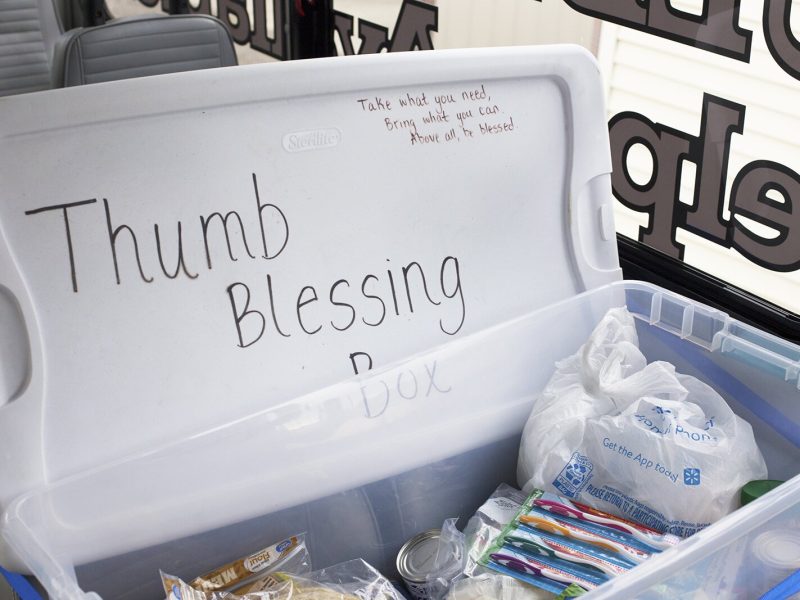 Take what you need,
Bring what you can
Above all, be blessed
Sterilite
Thumb
Blessing
Box
elp
Get the App today
PLEASE RETURN TO A PARTICIPATING STORE FOR